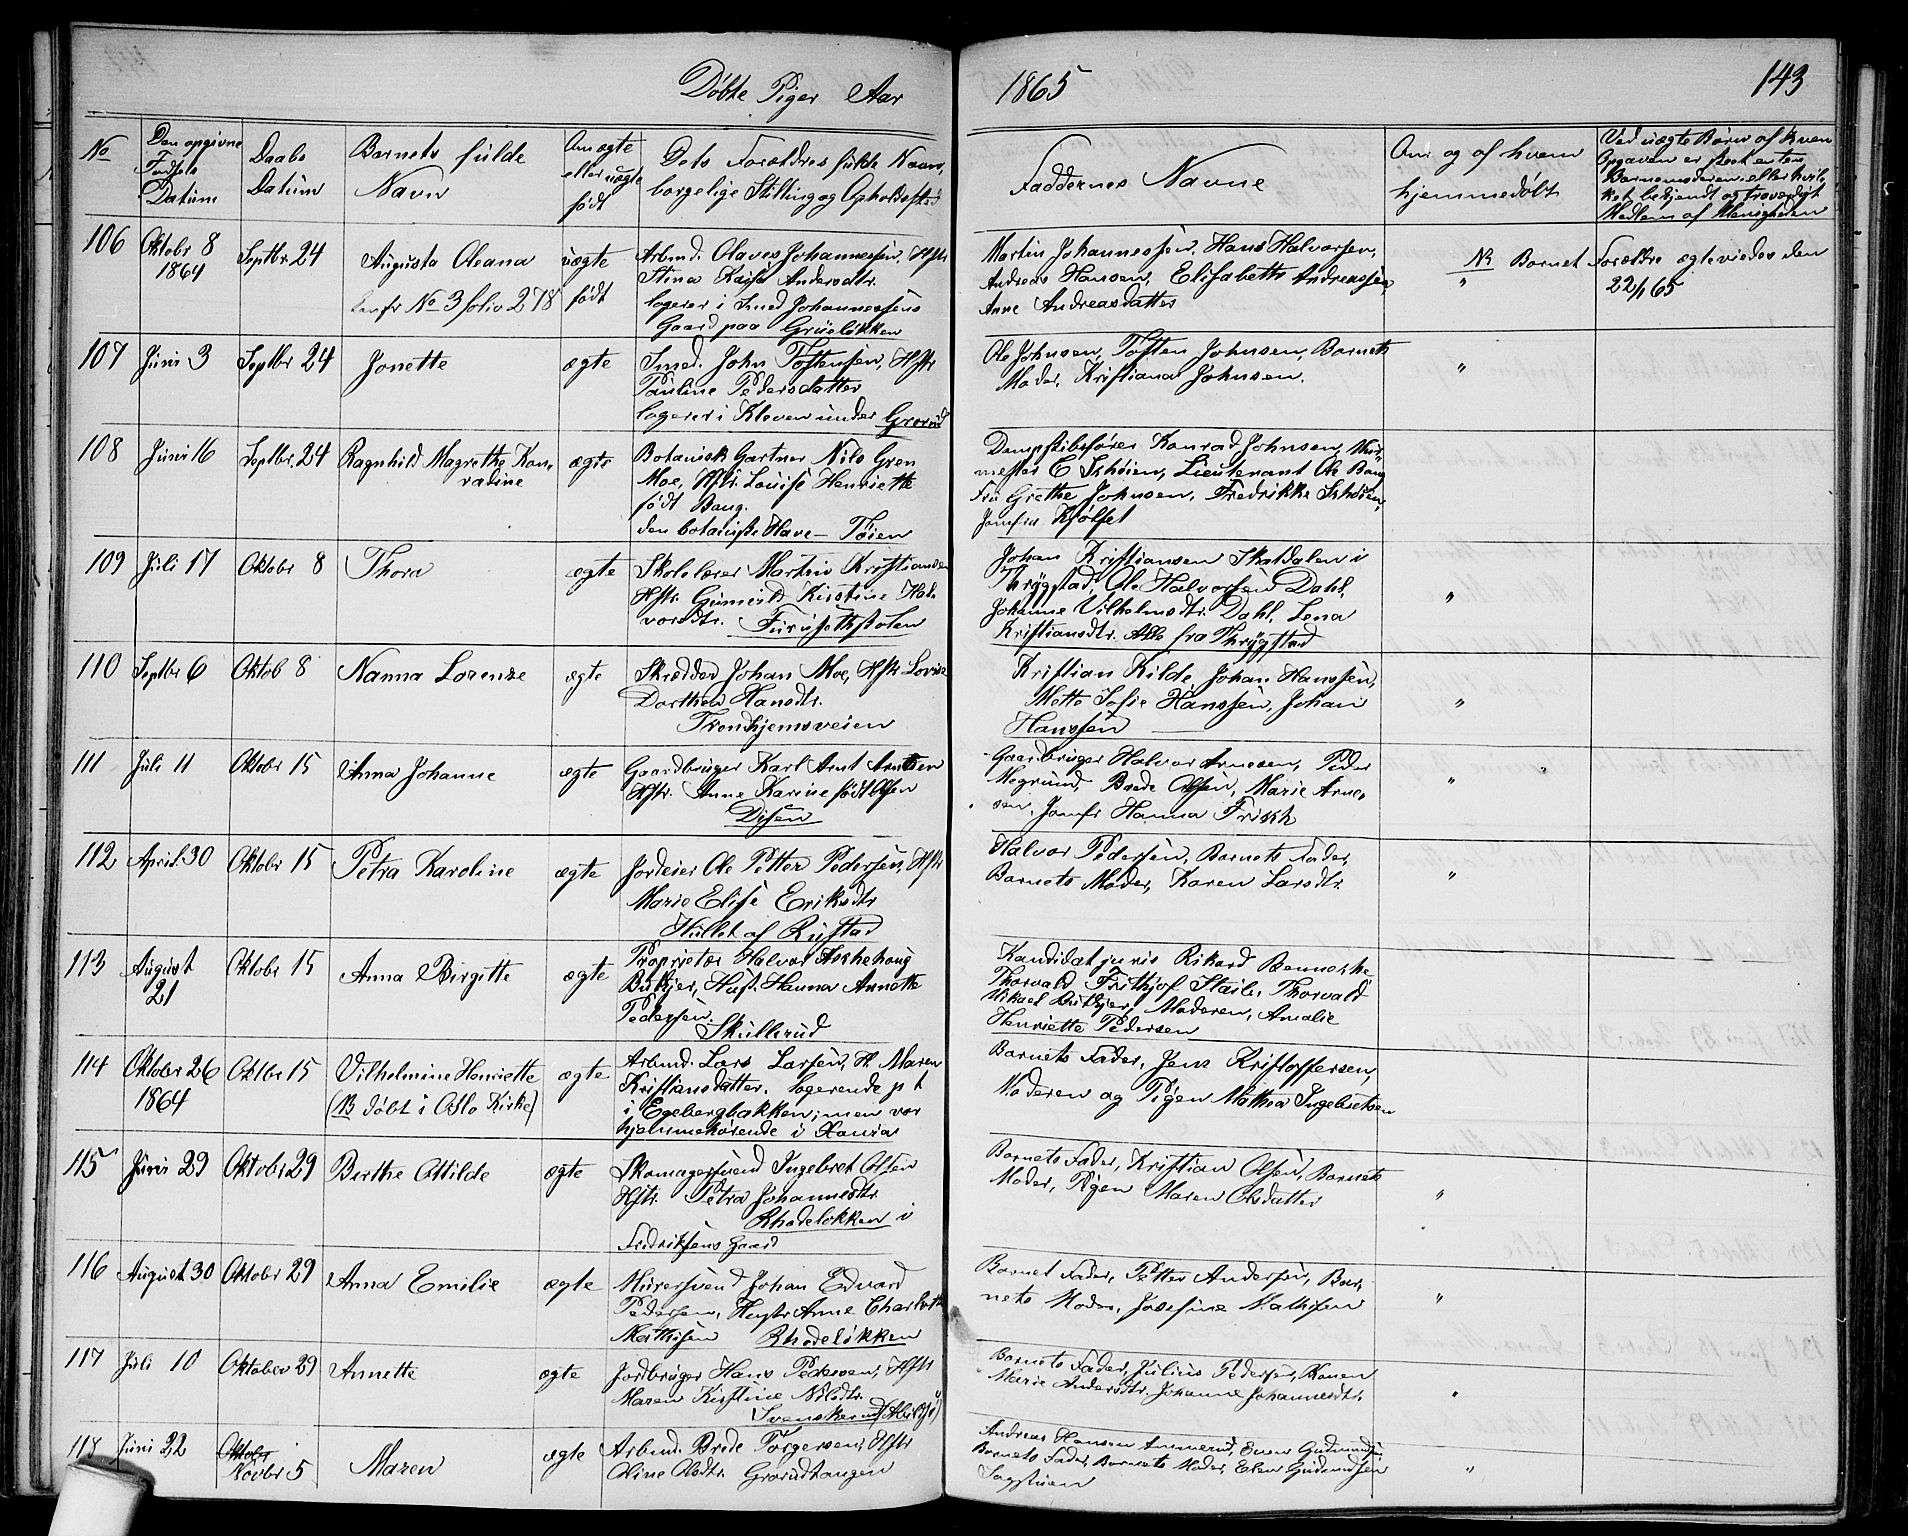 Døbte Piger Aar 1865 143
No
Den opgivne Fødsels Datum
Daabs Datum
Barnets fulde Navn
Om ægte eller uægte født
Dets Forældres fulde Navn, borgelige Stilling og Opholdssted
Faddernes Navne
Om og af hvem hjemmedøbt
Ved uægte Børn af hvem Opgaven er skeet enten Barnemoderen eller hvilket bekjendt og troværdigt Medlem af Menigheden
106 Oktobr 8 1864 Septbr. 24 Augusta Oleana uægte født
confr No 3 folio 278
Arbmd. Olaves Johannessen, Hstr
Stina Kaisa Andersdtr.
logerer i Smed Johannessens
Gaard paa Grüneløkken
Martin Johannessen, Hans Halvorsen,
Andreas Hansen, Elisabeth Andreassen,
Anne Andreasdatter
"
NB Barnet Forældre ægteviedes den
22/1 65
107 Juni 3 Septbr 24 Jonette ægte
Smed. John Tostensen, Hstr
Pauline Pedersdatter
logerer i Kleven under Grorud
Ole Johnsen, Tosten Johnsen, Barnets
Moder, Kristiana Johnsen.
"
108 Juni 16 Septbr. 24 Ragnhild Magrethe Kon-
radine ægte
Botanisk Gartner Nils Gren
Moe, Hstr. Louise Henriette
født Bang.
den botaniske Have - Tøien
Dampskibsfører Konrad Johnsen,
mester C Schøien, Lieutenant Ole Bang
Fru Grethe Johnsen, Fredrikke Schøien,
Jomfru Kjølset
109 Juli 17 Oktobr 8 Thora ægte
Skolelærer Martin Kristiansen
Hstr. Gunnild Kirstine Hal-
vorsdtr. Furusethskolen
Johan Kristiansen Skatdalen i
Thrygstad, Ole Halvorsen Dahl,
Johanne Vilhelmsdtr. Dahl, Lena
Kristiansdtr. Alle fra Thrygstad
"
110 Septbr 6 Oktob 8 Nanna Lorenze ægte
Skrædder Johan Moe, Hstr Lovise
Dorthea Hansdtr.
Trondhjemsveien
Kristian Kilde, Johan Hanssen,
Mette Sofie Hanssen, Johan
Hanssen
"
111 Juli 11 Oktobr 15 Anna Johanne ægte
Gaardbruger Karl Arnt Arntsen
Hstr. Anne Karine født Olsen
Disen
Gaardbruger Halvor Arnesen, Peder
Megrund, Brede Olsen, Marie Arne-
sen, Jomfr Hanna Frisk
"
112 April 30 Oktobr 15 Petra Karoline ægte
Jordeier Ole Petter Pedersen, Hstr
Marie Elise Eriksdtr
Hullet af Rustad
Halvor Pedersen, Barnets Fader,
Barnets Moder, Karen Larsdtr.
"
113 August 21 Oktobr 15 Anna Birgitte ægte
Proprietær Halvor Askehoug
Butkjer, Hust. Hanna Annette
Pedersen.
Skullerud
Kandidat juris Rikard Benneche
Thorvald Frithjof Staib, Thorvald
Mikael Butkjer, Moderen, Amalie
Henriette Pedersen
114 Oktober 26 1864 Oktbr 15 Vilhelmine Henriette ægte
(NB Døbt i Oslo Kirke)
Arbmd. Lars Larsen, H. Maren
Kristiansdatter. logerende p t
i Egebergbakken; men var
hjemmehørende i Xania
Barnets Fader, Jens Kristoffersen,
Moderen og Pigen Mathea Ingebretsen
115 Juni 29 Oktobr 29 Berthe Ottilde ægte
Skomagersvend Ingebret Olsen
Hstr. Petra Johannesdtr.
Rhodeløkken i
Fredriksens Gaard
Barnets Fader, Kristian Olsen, Barnets
Moder, Pigen Maren Olsdatter
"
116 August 30 Oktobr 29 Anna Emilie ægte
Murersvend Johan Edvard
Pedersen, Hustr Anne Charlotte
Mathisen Rhodeløkken
Barnet Fader, Petter Andersen, Bar-
nets Moder, Josefine Mathisen
"
117 Juli 10 Oktober 29 Annette ægte
Jordbruger Hans Pedersen, Hstr
Maren Kirstine Nilsdtr.
Svenskerud (Abildsø)
Barnets Fader, Julius Pedersen, Karen
Marie Andersdtr. Johanne Johannesdtr.
"
118 Juni 22 Oktobr Novbr 5 Maren ægte
Arbmd. Brede Torgersen, Hstr
Oline Olsdtr. Grorudhaugen
Andreas Hansen Ammerud, Even Gudmundsen
Barnets Fader, Barnets Moder, Elen Gudmundsen
Sagstuen
"